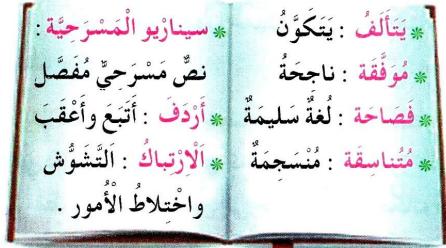 يَتَأَلَّفُ : يَتَكَوَّنُ
مُوَفَّقَة : ناجِحَةُ
فَصَاحَة : لُغَةٌ سَليمَةٌ
مُتَناسِقَة : مُنْسَجِمَةٌ
سيناريو الْمَسْرَحِيَّة :
نصٌّ مَسْرَحِيٌّ مُفَصَّل
أَرْدَفَ : أَتْبَعَ وأعْقَبَ
اَلْاِرْتِباكُ : اَلتَّشَوُّش
واخْتِلاطُ الْأُمور .